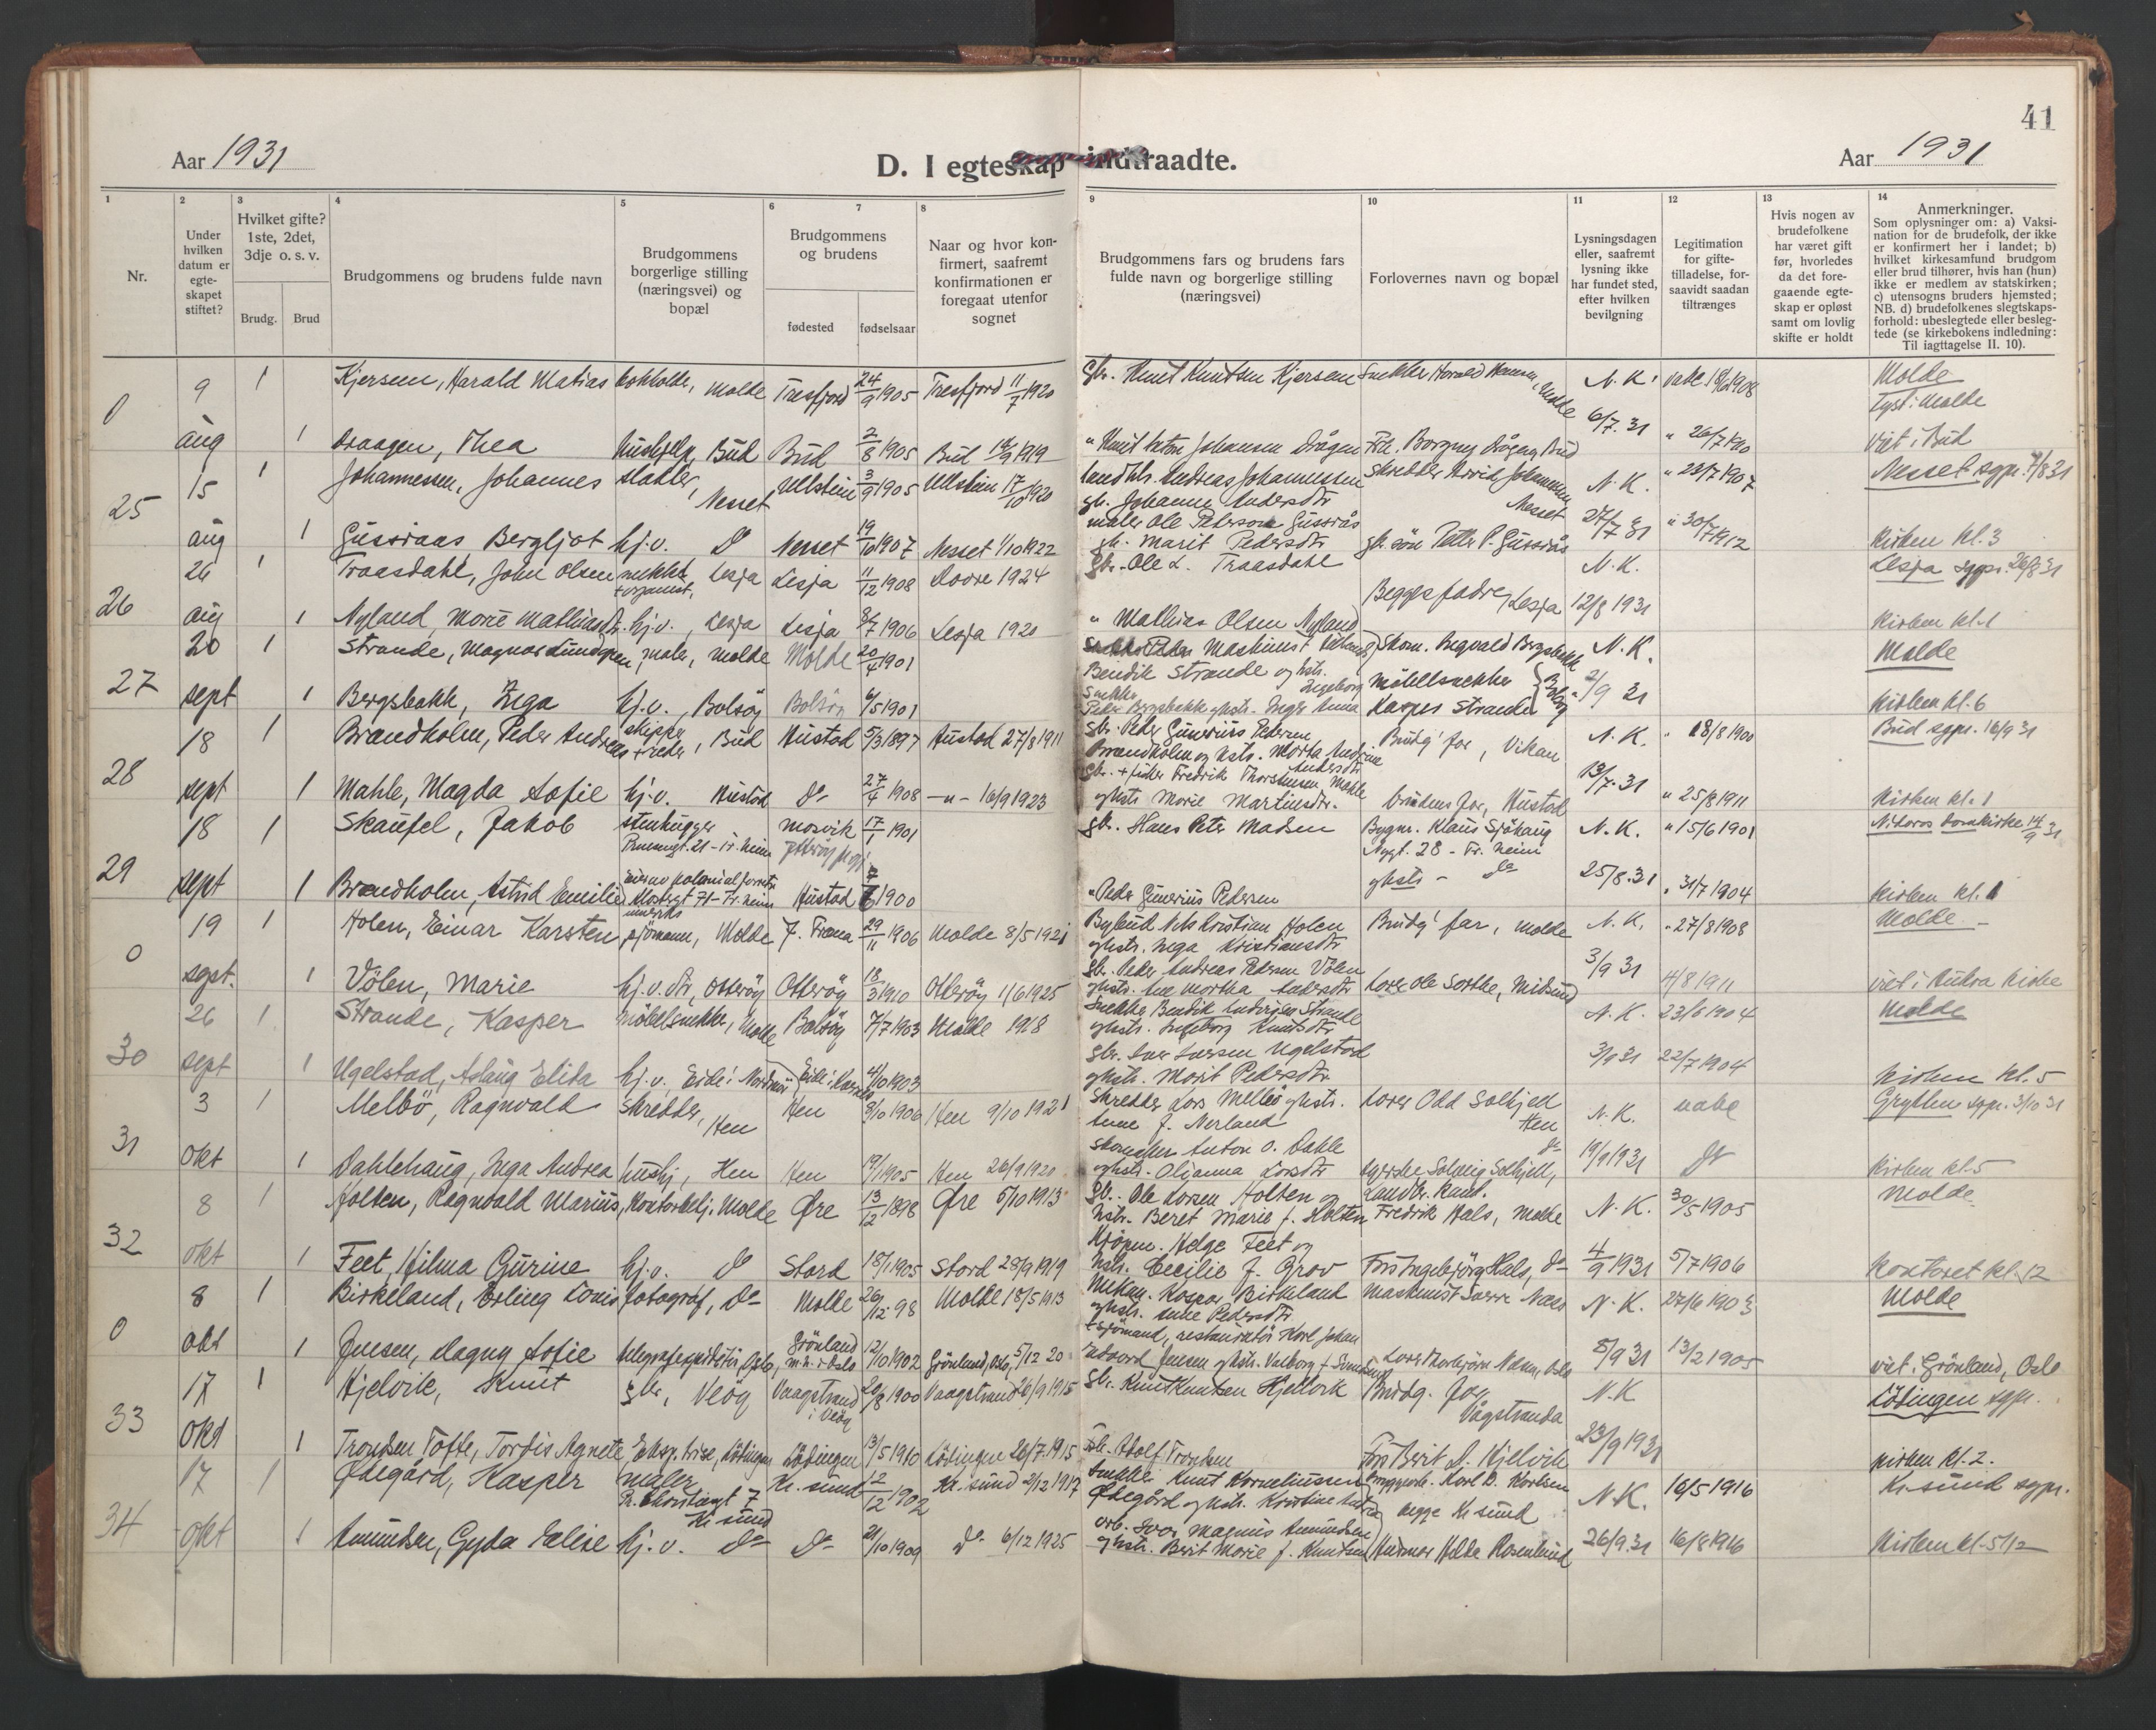 41
Aar 1931
D. I egteskap indtraadte.
Aar 1931
1
2
3
4
5
6
7
8
9
10
11
12
13
14
Nr.
Under hvilken datum er egte-skapet stiftet?
Hvilket gifte? 1ste, 2det, 3dje o. s. v.
Brudg.
Brud
Brudgommens og brudens fulde navn
Brudgommens borgerlige stilling (næringsvei) og bopæl
Brudgommens og brudens
fødested
fødselsaar
Naar og hvor kon-firmert, saafremt konfirmationen er foregaat utenfor sognet
Brudgommens fars og brudens fars fulde navn og borgerlige stilling (næringsvei)
Forlovernes navn og bopæl
Lysningsdagen eller, saafremt lysning ikke har fundet sted, efter hvilken bevilgning
Legitimation for gifte-tilladelse, for-saavidt saadan tiltrænges
Hvis nogen av brudefolkene har været gift før, hvorledes da det fore-gaaende egte-skap er opløst samt om lovlig skifte er holdt
Anmerkninger.
Som oplysninger om: a) Vaksi-nation for de brudefolk, der ikke er konfirmert her i landet; b) hvilket kirkesamfund brudgom eller brud tilhører, hvis han (hun) ikke er medlem av statskirken; c) utensogns bruders hjemsted; NB. d) brudefolkenes slegtskaps-forhold: ubeslegtede eller besleg-tede (se kirkebokens indledning: Til iagttagelse II. 10).
0 9 1 Kjersem, Harald Matias Molde Tresfjord 24/9 1905 Tresfjord 11/7 1920 gbr. Knut Knutsen Kjersem Snekker Harald Hansen, Molde N.K. Molde
Lyst i Molde
aug 1 Draagen, Thea hushjelp, Bud Bud 2/8 1905 Bud 1919 " Knut Johansen Drågen Frk. Borgny Drågen, Bud 6/7.31 " 26/7 1910 viet i Bud
25 15 1 Johannessen, Johannes Nesset Ullstein 3/9 1905 Ullstein 17/10 1920 landh. Andreas Johannessen N.K. " 23/7 1907 Nesset sgpr. 7/8 31
Nesset
aug 1 Gussiaas, Bergljot hj.v. Do Nesset 19/10 1907 Nesset 1/10 1922 maler Ole Peterson Gussiås gh. Marit Pedersdtr gbr. søn Petter P. Gussiås 27/7 31 " 30/7 1912 Kirken kl. 3
26 26 1 Traasdahl, John Olsen Lesja Lesja 11/12 1908 Dovre 1924 gbr. Ole L. Traasdahl N.K. Lesja sgpr. 26/8 31
Begges fædre, Lesja 12/8 1931
aug 1 Nyland, Marie hj.v., Lesja Lesja 1906 Lesja 1920 " Mathias Olsen Nyland Kirken kl. 1
27 20 1 Strande, Magnar maler, Molde Molde 20/4 1901 Bendik Strande og hstr. Ingeborg Skom. Ingvald Bergsbakk N.K. Molde
sept 1 Bergsbakk, Inga hj.v., Bolsöy Bolsöy 6/5 1901 Møbelsnekker Kasper Strande 2/9 31 Kirken kl. 6
28 18 1 Brandholm, Peder Andreas skipper + reder, Bud Hustad 5/3 1897 Hustad 27/8 1911 gbr. Peder Gunerius Pedersen Brandholm og hstr. Marta Andrine Andersdtr Brudg' far, Vikan N.K. " 18/8 1900 Bud sgpr. 16/9 31
sept 1 Mahle, Magda Sofie hj.v. Hustad Do 27/4 1908 -"- 16/9 1923 gbr. + fisker Fredrik Thorstensen Mahle og hstr Marie Martinsdtr. brudens far, Hustad 13/7.31 " 25/8 1911 Kirken kl. 1
29 18 1 Skaufel, Jakob stenhugger Mosvik 17/1 1901 gbr. Hans Peter Madsen Bygm. Klaus Sjöhaug N.K. " 15/6 1901 Nidaros Domkirke 14/9 31
sept 1 Brandholm, Astrid Emilie Hustad 1900 " Peder Gunerius Pedersen og hstr - Do 25/8.31 " 31/7 1904 Kirken kl. 1
0 19 1 Holen, Einar Karsten sjömann, Molde Y. Fræna 29/11 1906 Molde 8/5 1921 Bybud Nils Kristian Holen og hstr. Inga Kristiansdtr Brudg' far, Molde N.K. " 27/8 1908 Molde
sept. 1 Völen, Marie hj.v. dtr, Otteröy Otteröy 18/3 1910 Otteröy 1/6 1925 gbr. Peder Andreas Pedersen Völen og hstr. Martha Andersdtr Ole Sorthe, Midsund 3/9 31 4/8 1911 viet i Aukra kirke
30 26 1 Strande, Kasper Möbelsnekker, Molde Bolsöy 7/7 1903 Molde 1918 Snekker Bendik Strande og hstr. Ingeborg Knutsdtr N.K. 23/6 1904 Molde
sept 1 Ugelstad, Aslaug Elida hj.v. Eide i Nordmør 4/10 1903 gbr. Iver Iversen Ugelstad og hstr. Marit Pedersdtr 3/9 31 22/7 1904 Kirken kl. 5
31 3 1 Melbö, Ragnvald skredder, Hen Hen 3/10 1906 Hen 9/10 1921 Skredder Lars Melbö og hstr. Anne f. Nerland Odd Solhjell Hen N.K. vabe Grytten sgpr. 3/10 31
okt 1 Dahlehaug, Inga Andrea hushj, Hen Hen 19/1 1905 Hen 26/9 1920 Skomaker Anton O. Dahle og hstr. Olianna Larsdtr Solveig Solhjell, Do 19/9 1931 Do Kirken kl. 5
32 8 1 Holten, Ragnvald Marius, Kontorbetj. Molde Øre 13/12 1898 Øre 5/10 1913 gbr. Ole Larsen Holten og hstr. Beret Marie f. Holten Fredrik Hals, Molde N.K. 30/5 1905 Molde
okt 1 Feet, Hilma Gurine hj.v. Do Stord 18/1 1905 Stord 28/9 1919 Kjöpm. Helge Feet og hstr. Cecilie f. Grov Fru Ingebjörg Hals, Do 4/9 1931 5/7 1906 Kontoret kl. 12
0 8 1 Birkeland, Erling Louis fotograf, Do Molde 26/12 98 Molde 18/5 1913 Kaspar Birkeland og hstr. Anne Pedersdtr Maskinist Sverre Næss N.K. 27/6 1903 Molde
okt 1 Jensen, Dagny Sofie Oslo, Grönland 12/10 1902 Grönland, Oslo, 5/12 20 + sjömand, restauratör Karl Johan Edvard Jensen og hstr. Valborg 5/9 31 13/2 1905 viet. Grönland, Oslo
33 17 1 Hjelvik, Knut gbr, Veöy Vaagstrand i Veöy 20/8 1900 Vaagstrand 26/9 1915 gbr. Knut Knutsen Hjelvik Brudg. far, Vågstranda N.K Lödingen sgpr.
okt 1 Trondsen Tofte, Tordis Agnete Eksp. trise, Lödingen Lödingen 13/5 1910 Lödingen 26/7 1915 Adolf Trondsen Berit L. Hjelvik 23/9 1931 Kirken kl. 2.
34 17 1 Ødegård, Kasper maler Kr. sund Kr. sund 12/12 1902 Kr. sund 2/12 1917 Snekker Knut Korneliussen Ødegård og hstr. Kristine Karl B. Karlsen begge Kr sund N.K. 16/5 1916 Kr. sund sgpr.
okt 1 Amundsen, Gyda Elise hj.v. Do Do 21/10 1909 Do 6/12 1925 arb. Ivar Magnus Amundsen og hstr. Berit Marie f. Knutsen Helda Rosenlund 26/9.31 16/8 1916 Kirken kl. 5 1/2